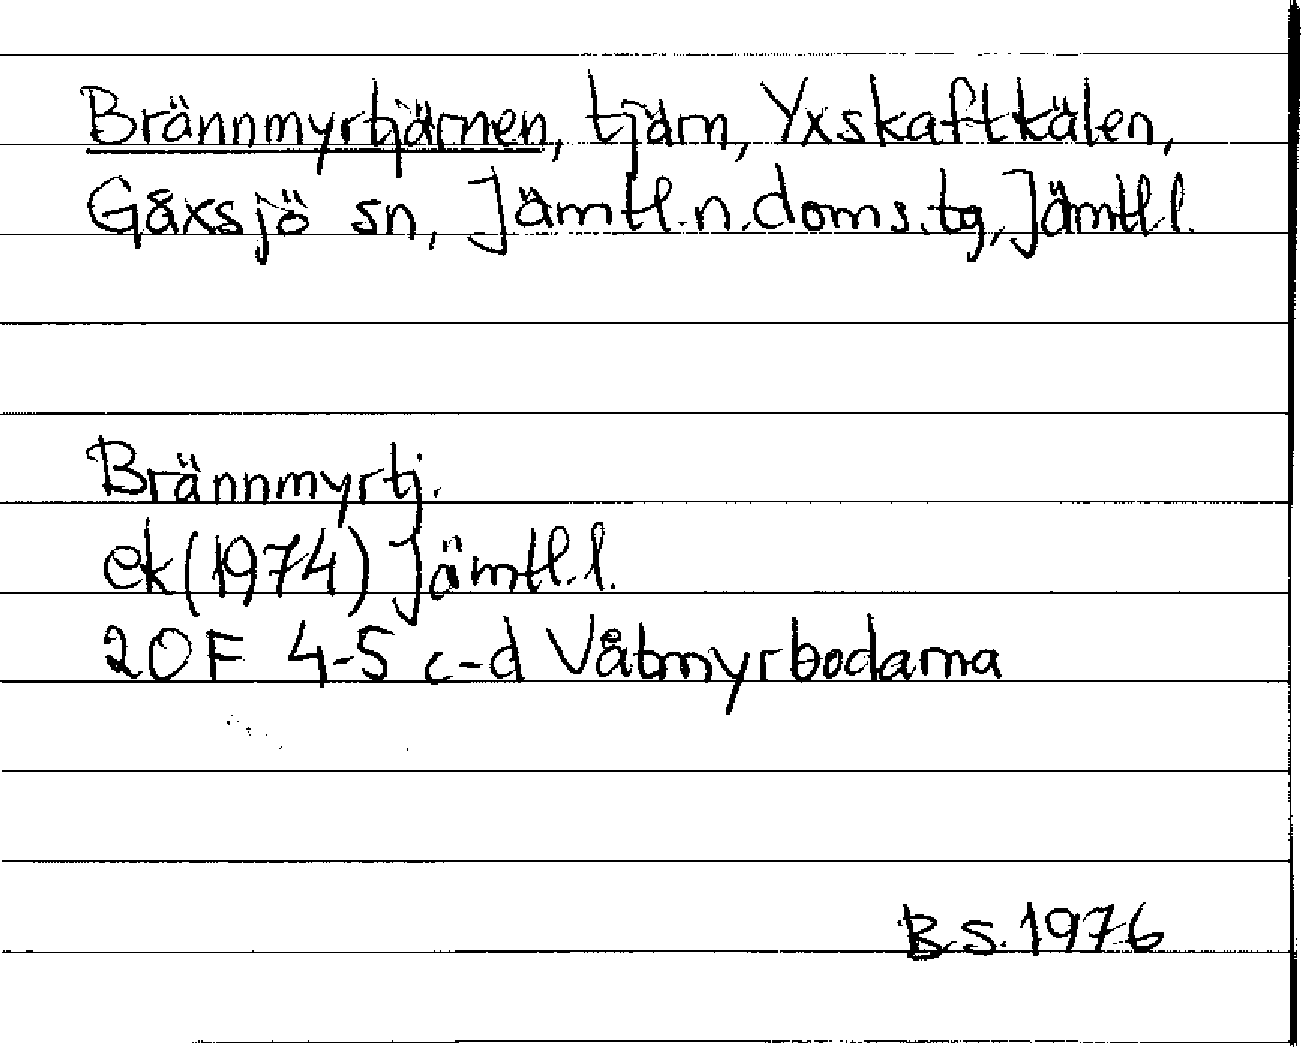 Brännmyrtjärnen, tjärn, Yxskaftkälen,
Gåxsjö sn, Jämtl.n.doms.tg, Jämtl.l.
Brännmyrtj.
ek (1974) Jämtl.l.
20 F 4-5 c-d Våtmyrbodarna
B.S. 1976